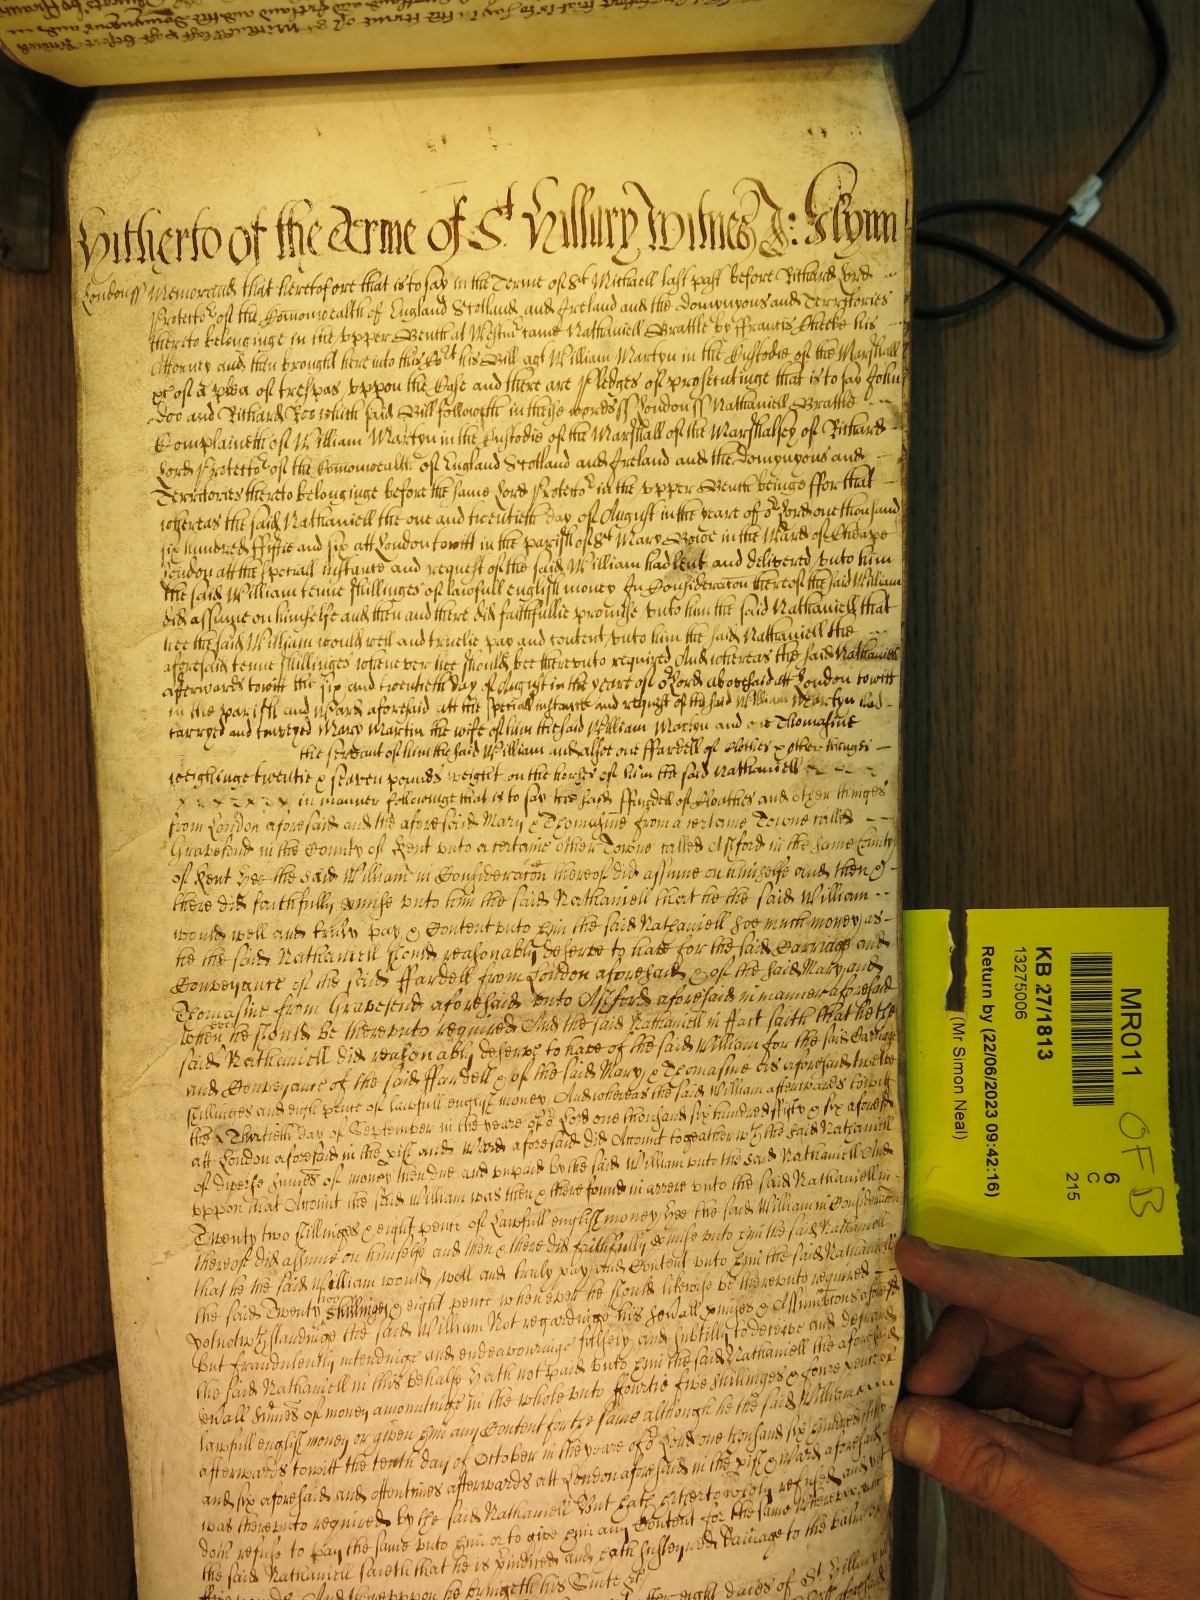 Hitherto of the Terme of St Hillary Witnes J: Glynn
London ss Memorand that heretofore that is to say in the Terme of St Michaell last past before Richard Lord
Protector of the Comonwealth of England Scotland and Ireland and the Domynyons and Territories
thereto belonginge in the upper Bench at Westmr came Nathaniell Brattle by ffrancis Cheeke his
Attorney and then brought here into this Cort his Bill agt William Martyn in the Custodie of the Marshall
&c of a plea of trespas uppon the Case and there are Pledges of prosecutinge that is to say John
Doo and Richard Roo which said Bill followeth in theise wordes ss London ss Nathaniell Brattle
Complaineth of William Martyn in the Custodie of the Marshall of the Marshalsey of Richard
Lord Protector of the Comonwealth of England Scotland and Ireland and the Domynyons and
Territories thereto belonginge before the same Lord Protector in the upper Bench beinge ffor that
whereas the said Nathaniell the one and twentieth day of August in the yeare of or Lord one thousand
six hundred ffiftie and six att London towitt in the parish of St Mary Bowe in the Ward of Cheape
London att the speciall instance and request of the said William had lent and delivered unto him
the said William tenne shillinges of lawfull english money In Consideracon thereof the said William
did assume on himselfe and then and there did faithfullie promise unto him the said Nathaniell that
hee the said William would well and truelie pay and content unto him the said Nathaniell the
aforesaid tenne shillinges whenever hee should bee thereunto required And whereas the said Nathaniell
afterwards towitt the six and twentieth day of August in the yeare of or Lord abovesaid att London towitt
in the parish and Ward aforesaid att the speciall instance and request of the said William Martyn had
carryed and conveyed Mary Martin the wife of him the said William Martyn and one Thomasine
the servant of him the said William and alsoe one ffardell of clothes & other thinges
weighinge twentie & seaven pounds weight on the horses of him the said Nathaniell
in manner followinge that is to say the said ffardell of Cloathes and other thinges
from London aforesaid and the aforesaid Mary & Thomasine from a certaine Towne called
Gravesend in the County of Kent unto a certaine other Towne called Ashford in the same County
of Kent hee the said William in Consideracon thereof did assume on himselfe and then &
there did faithfully pmise unto him the said Nathaniell that he the said William
would well and truly pay & Content unto him the said Nathaniell soe much money as
he the said Nathaniell should reasonably deserve to have for the said Carriage and
Conveyance of the said ffardell from London aforesaid & of the said Mary and
Thomasine from Gravesend aforesaid unto Ashford aforesaid in manner aforesaid
when ever he should be thereunto required And the said Nathaniell in ffact saith that he the
said Nathaniell did reasonably deserve to have of the said William for the said Carriage
and Conveyance of the said ffardell & of the said Mary & Thomasine as aforesaid twelve
shillinges and eight pence of lawfull english money And whereas the said William afterwards towitt
the Thirtieth day of September in the yeare of or Lord one thousand six hundred fifty & six aforesd
att London aforesaid in the pish and Ward aforesaid did Accompt togeather wth the said Nathaniell
of diverse summes of money then due and unpaid by the said William unto the said Nathaniell And
uppon that Accompt the said William was then & there found in arrere unto the said Nathaniell in
Twenty two shillinges & eight pence of Lawfull english money hee the said William in Consideracon
thereof did assume on himselfe and then & there did faithfully pmise unto him the said Nathaniell
that he the said William would well and truly pay and Content unto him the said Nathaniell
the said Twenty two shillinges & eight pence when ever he should likewise be thereunto required
yet notwthstandinge the said William Not regardinge his sevall pmises & Assumptons aforesd
but fraudulently intendinge and endeavouringe falsely and subtilly to deceive and defraud
the said Nathaniell in this behalfe hath not paid unto him the said Nathaniell the aforesaid
sevall summes of money amountinge in the whole unto ffourtie five shillinges & foure pence of
lawfull english money or given him any Content for the same although he the said William
afterwards towitt the tenth day of October in the yeare of or Lord one thousand six hundred fifty
and six aforesaid and oftentimes afterwards att London aforesaid in the pish & Ward aforesaid
was thereunto required by the said Nathaniell But hath hitherto wholy refused and yet
doth refuse to pay the same unto him or to give him any Content for the same Whereuppon
the said Nathaniell saieth that he is preiudiced and hath susteyned damage to the value of
five pounds And thereuppon he bringeth his Suite &c
after eight daies of St Hillary
MR011
6
C
215
KB 27/1813
13275006
Return by (22/06/2023 09:42:16)
(Mr Simon Neal)
OFB